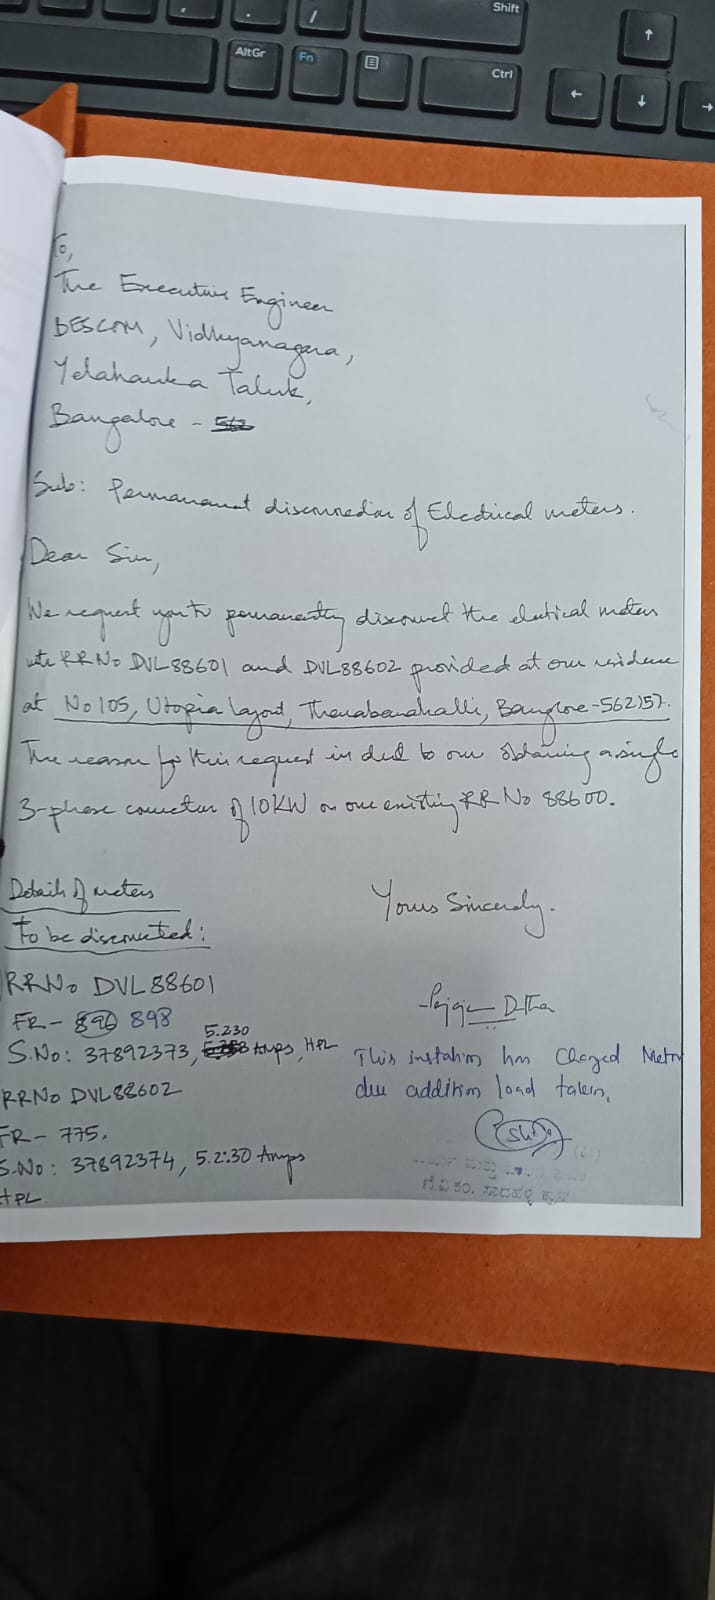 Shift
AltGr
Fn
Ctrl
To,
The Executive Engineer
BESCOM, Vidhyanagara,
Yelahanka Taluk,
Bangalore - 562
Sub: Permananat disconnection of Electrical meters.
Dear Sir,
We request you to permanently disconnect the eletrical meters
with RR No DVL88601 and DVL88602 provided at our residence
at No 105, Utopia Layout, Bangalore-562157.
The reason for this request is due to our obtaining a single
3-phase connection of 10KW on our existing RR No 88600.
Details of meters
Yours Sincerely.
To be disconnected:
RRNo DVL88601
FR- 896 898
5.230
S.No: 37892373, Amps, HPL
This has Changed Metr
RRNo DVL88602
due addition load taken.
FR- 775.
S.No: 37892374, 5.2:30 Amps
HPL